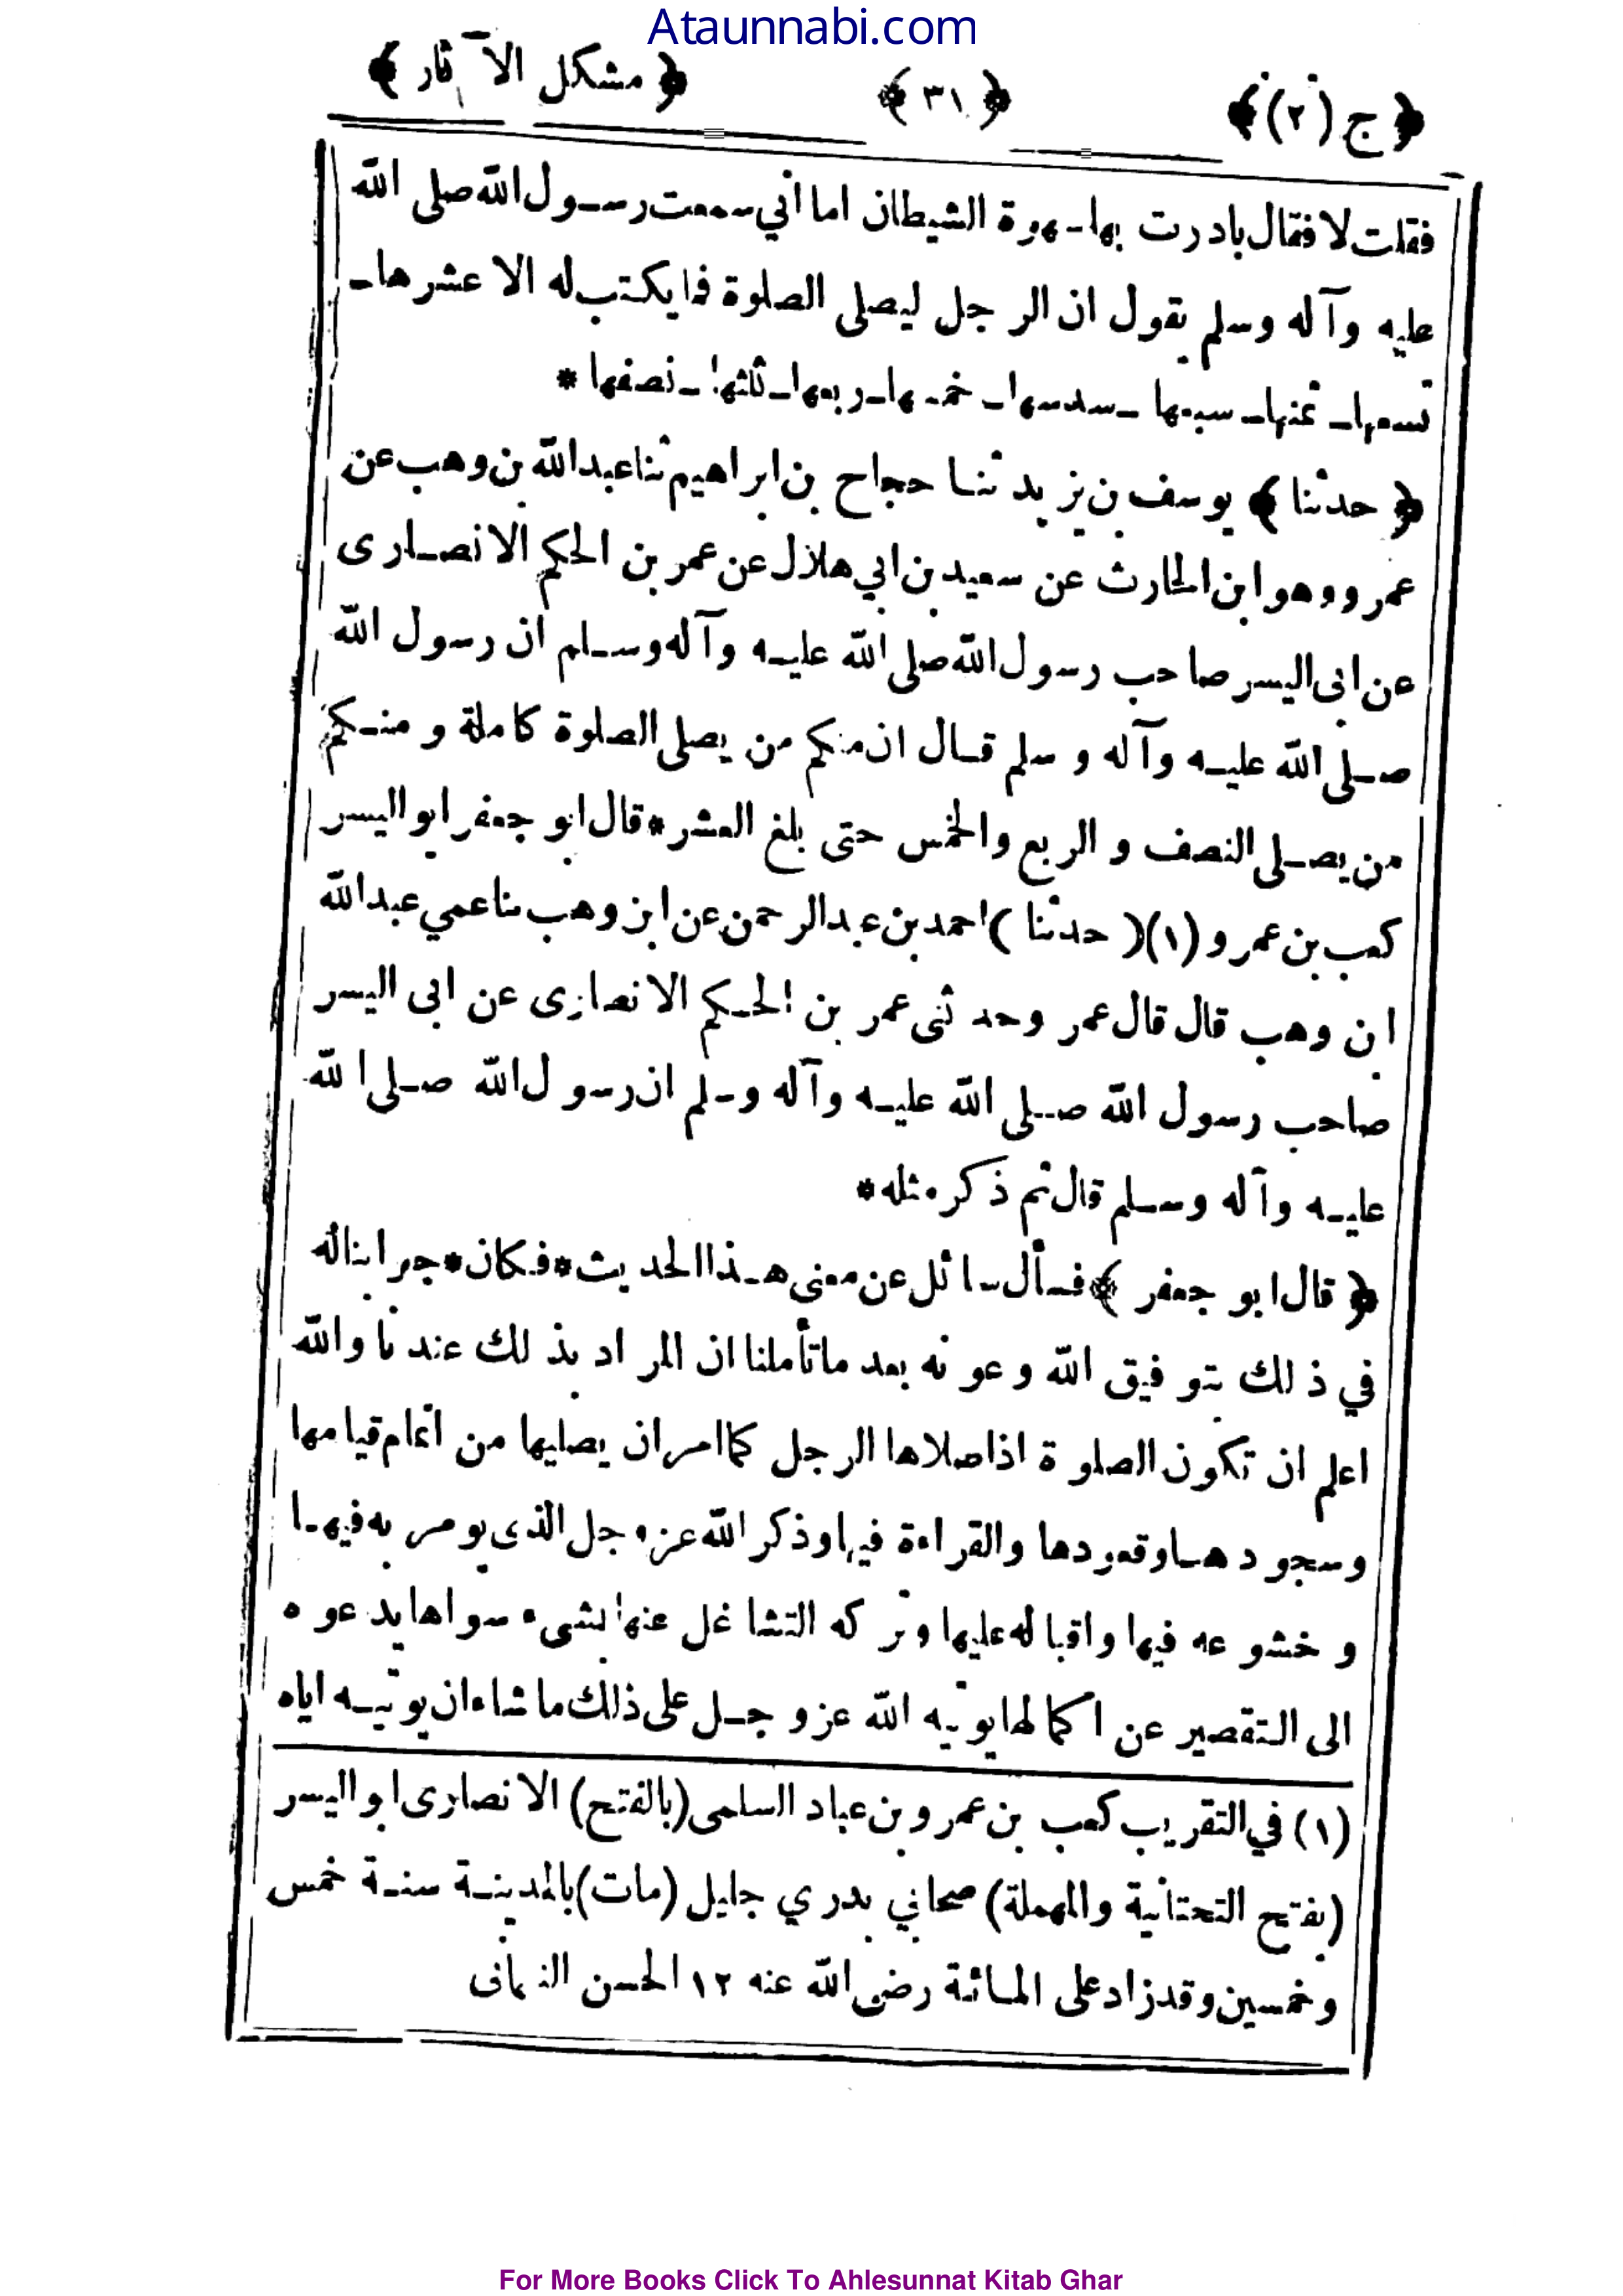 Ataunnabi.com
﴿ ج (٢) ﴾ ﴿ ٣١ ﴾ ﴿ مشكل الآثار ﴾
فقلت لا فقال بادرت بها سهوة الشيطان اما أني سمعت رسول الله صلى الله
عليه وآله وسلم يقول ان الرجل ليصلى الصلوة فما يكتب له الا عشرها ـ
تسعها ـ ثمنها ـ سبعها ـ سدسها ـ خمسها ـ ربعها ـ ثلثها ـ نصفها *
﴿ حدثنا ﴾ يوسف بن يزيد ثنا حجاج بن ابراهيم ثنا عبد الله بن وهب عن
عمرو وهو ابن الحارث عن سعيد بن ابي هلال عن عمر بن الحكم الانصارى
عن ابى اليسر صاحب رسول الله صلى الله عليه وآله وسلم ان رسول الله
صلى الله عليه وآله وسلم قال ان منكم من يصلى الصلوة كاملة ومنكم
من يصلى النصف و الربع والخمس حتى بلغ العشر * قال ابو جعفر ابو اليسر
كعب بن عمرو (١) ( حدثنا ) احمد بن عبد الرحمن عن ابن وهب ثنا عمي عبد الله
ابن وهب قال قال عمر وحدثنى عمر بن الحكم الانصارى عن ابى اليسر
صاحب رسول الله صلى الله عليه وآله وسلم ان رسول الله صلى الله
عليه وآله وسلم قال ثم ذكر مثله *
﴿ قال ابو جعفر ﴾ فسأل سائل عن معنى هذا الحديث * فكان * جوابنا له
في ذلك بتوفيق الله وعونه بعد ما تأملنا ان المراد بذلك عندنا والله
اعلم ان تكون الصلوة اذا صلاها الرجل كما امر ان يصليها من اتمام قيامها
وسجودها وقعودها والقراءة فيها وذكر الله عز وجل الذى يومر به فيها
وخشوعه فيها واقباله عليها وتركه التشاغل عنها بشىء سواها يدعوه
الى التقصير عن اكمالها يوتيه الله عز وجل على ذلك ما شاء ان يوتيه اياه
(١) في التقريب كعب بن عمرو بن عباد السلمى (بالفتح) الانصارى ابو اليسر
(بفتح التحتانية والمهملة) صحابي بدري جليل (مات) بالمدينة سنة خمس
وخمسين وقد زاد على المائة رضى الله عنه ١٢ الحسن النعمانى
For More Books Click To Ahlesunnat Kitab Ghar